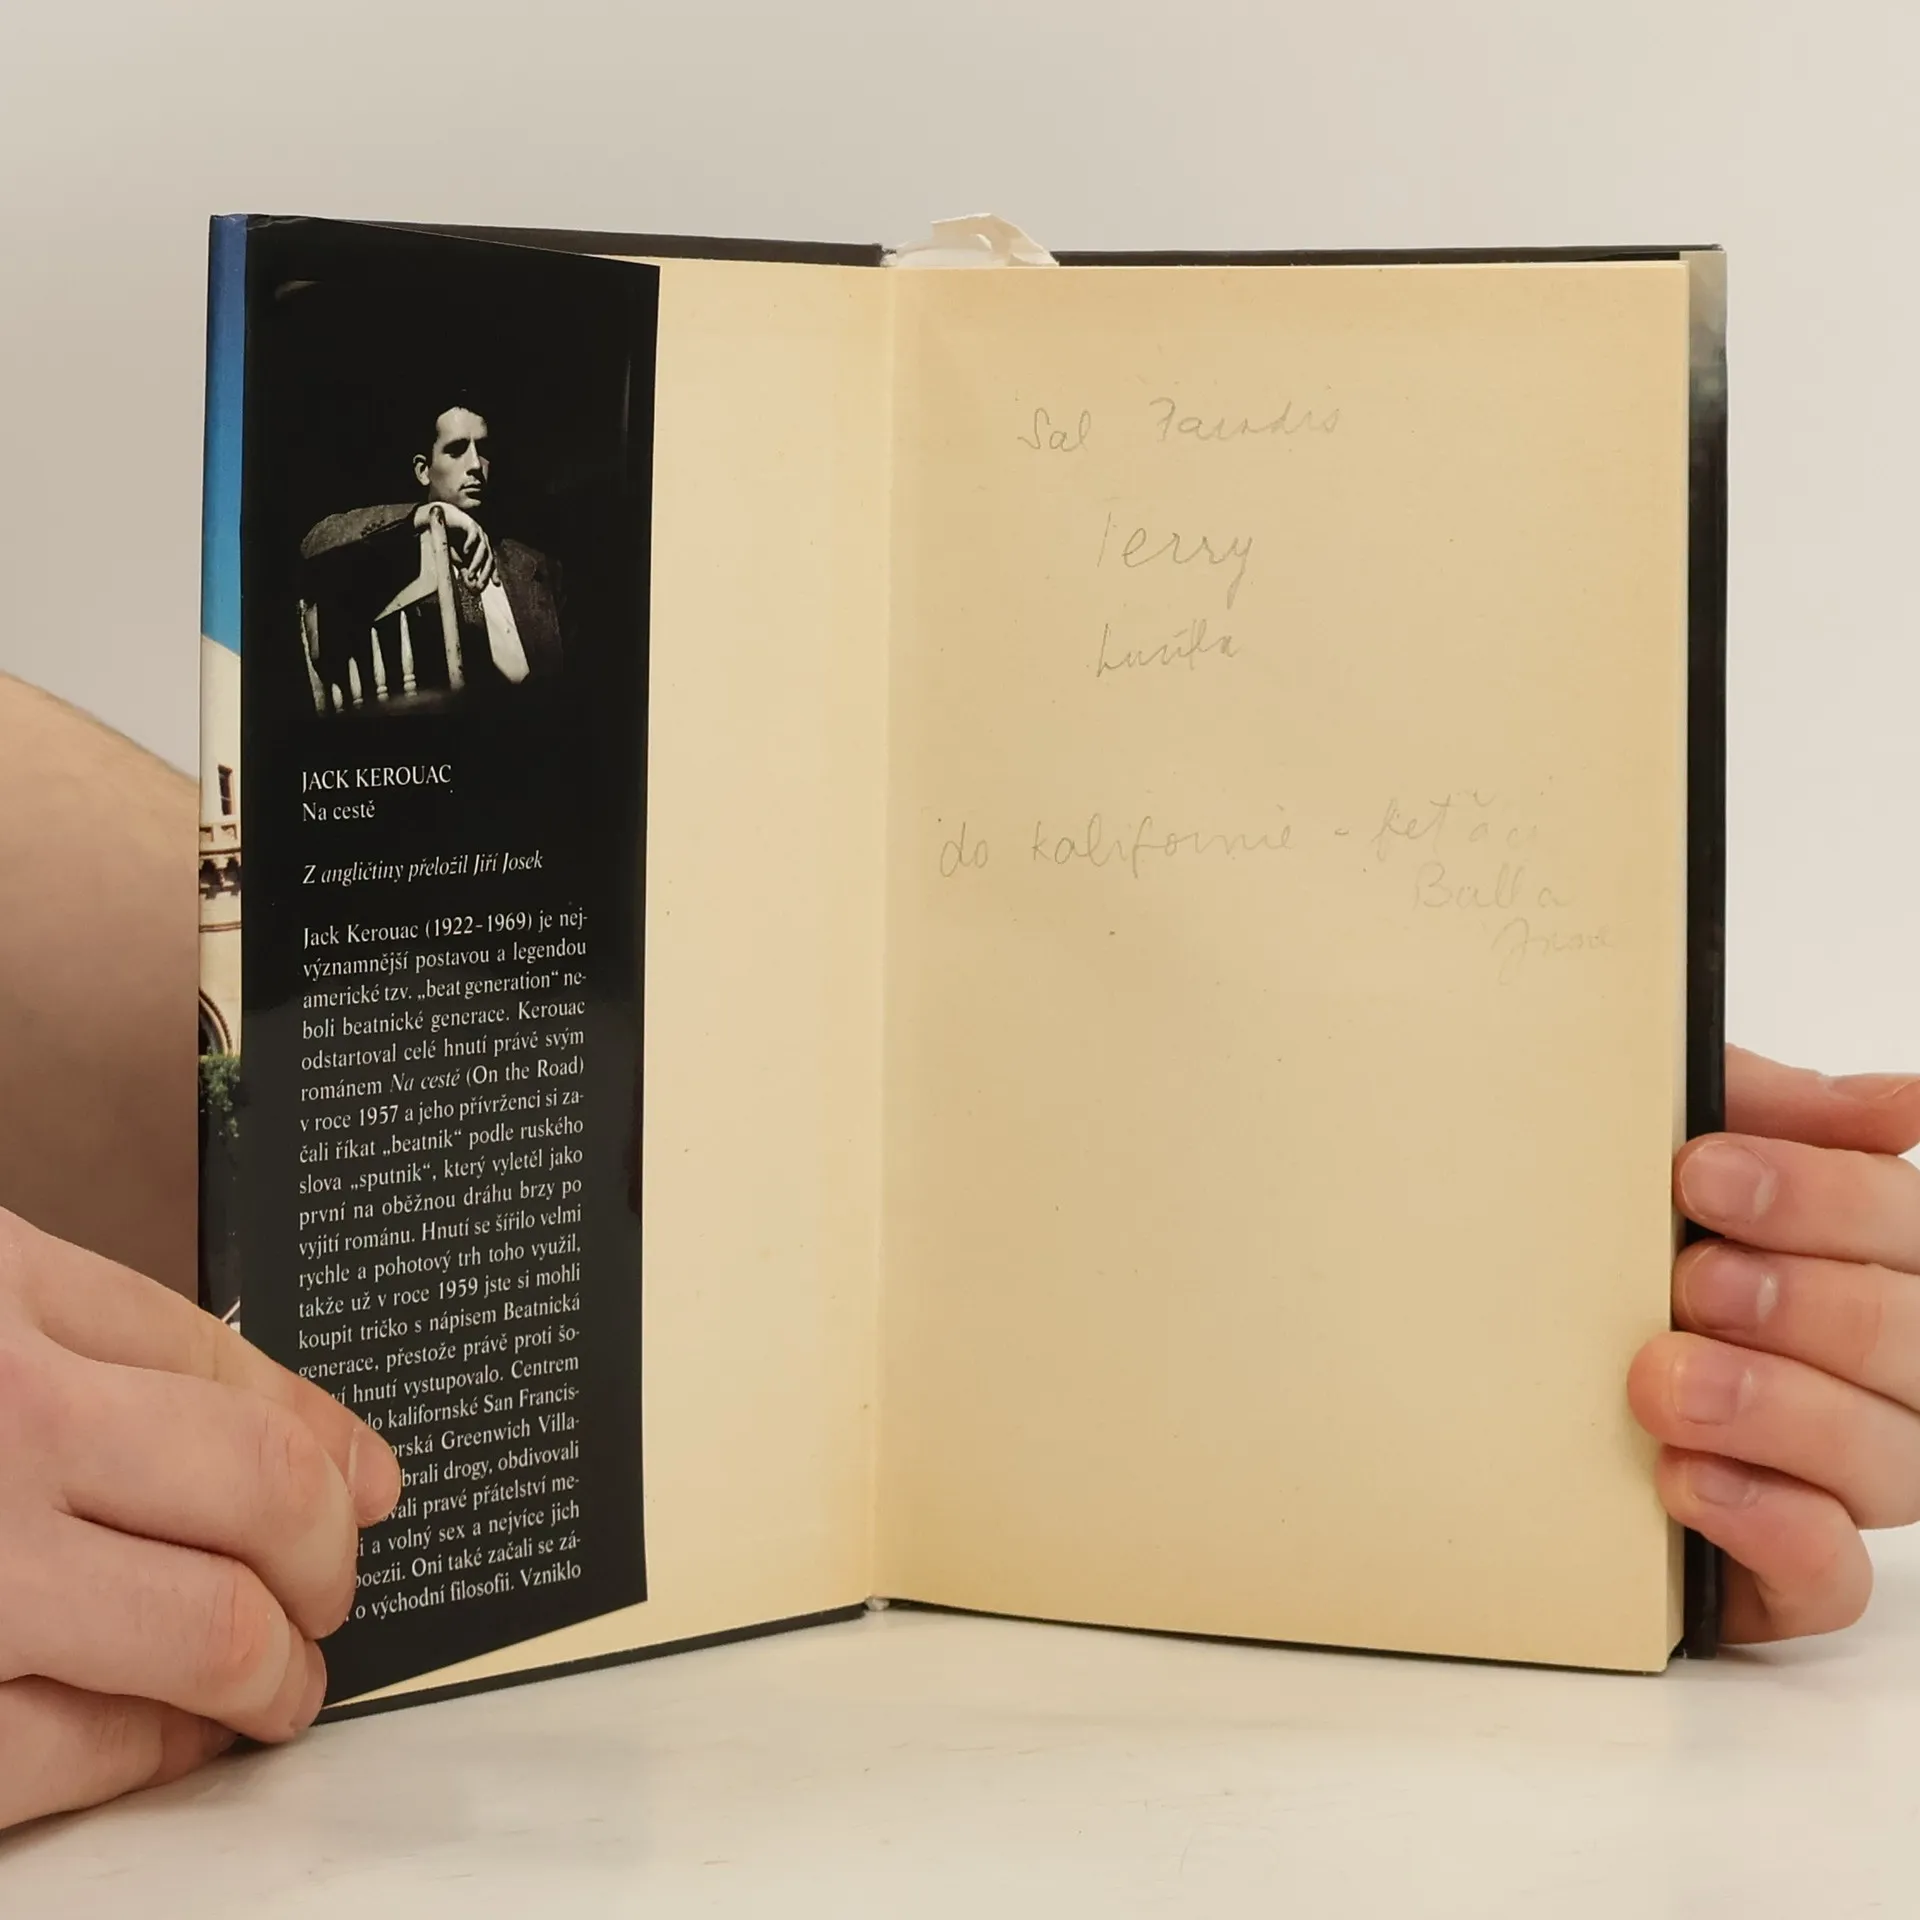 JACK KEROUAC
Na cestě
Z angličtiny přeložil Jiří Josek
Jack Kerouac (1922-1969) je nej-
významnější postavou a legendou
americké tzv. „beat generation“ ne-
boli beatnické generace. Kerouac
odstartoval celé hnutí právě svým
románem Na cestě (On the Road)
v roce 1957 a jeho přívrženci si za-
čali říkat „beatnik“ podle ruského
slova „sputnik“, který vyletěl jako
první na oběžnou dráhu brzy po
vyjití románu. Hnutí se šířilo velmi
rychle a pohotový trh toho využil,
takže už v roce 1959 jste si mohli
koupit tričko s nápisem Beatnická
generace, přestože právě proti šo-
hnutí vystupovalo. Centrem
kalifornské San Francis-
Greenwich Villa-
brali drogy, obdivovali
pravé přátelství me-
a volný sex a nejvíce jich
Oni také začali se zá-
o východní filosofii. Vzniklo
Sal
Terry
do kalifornie -